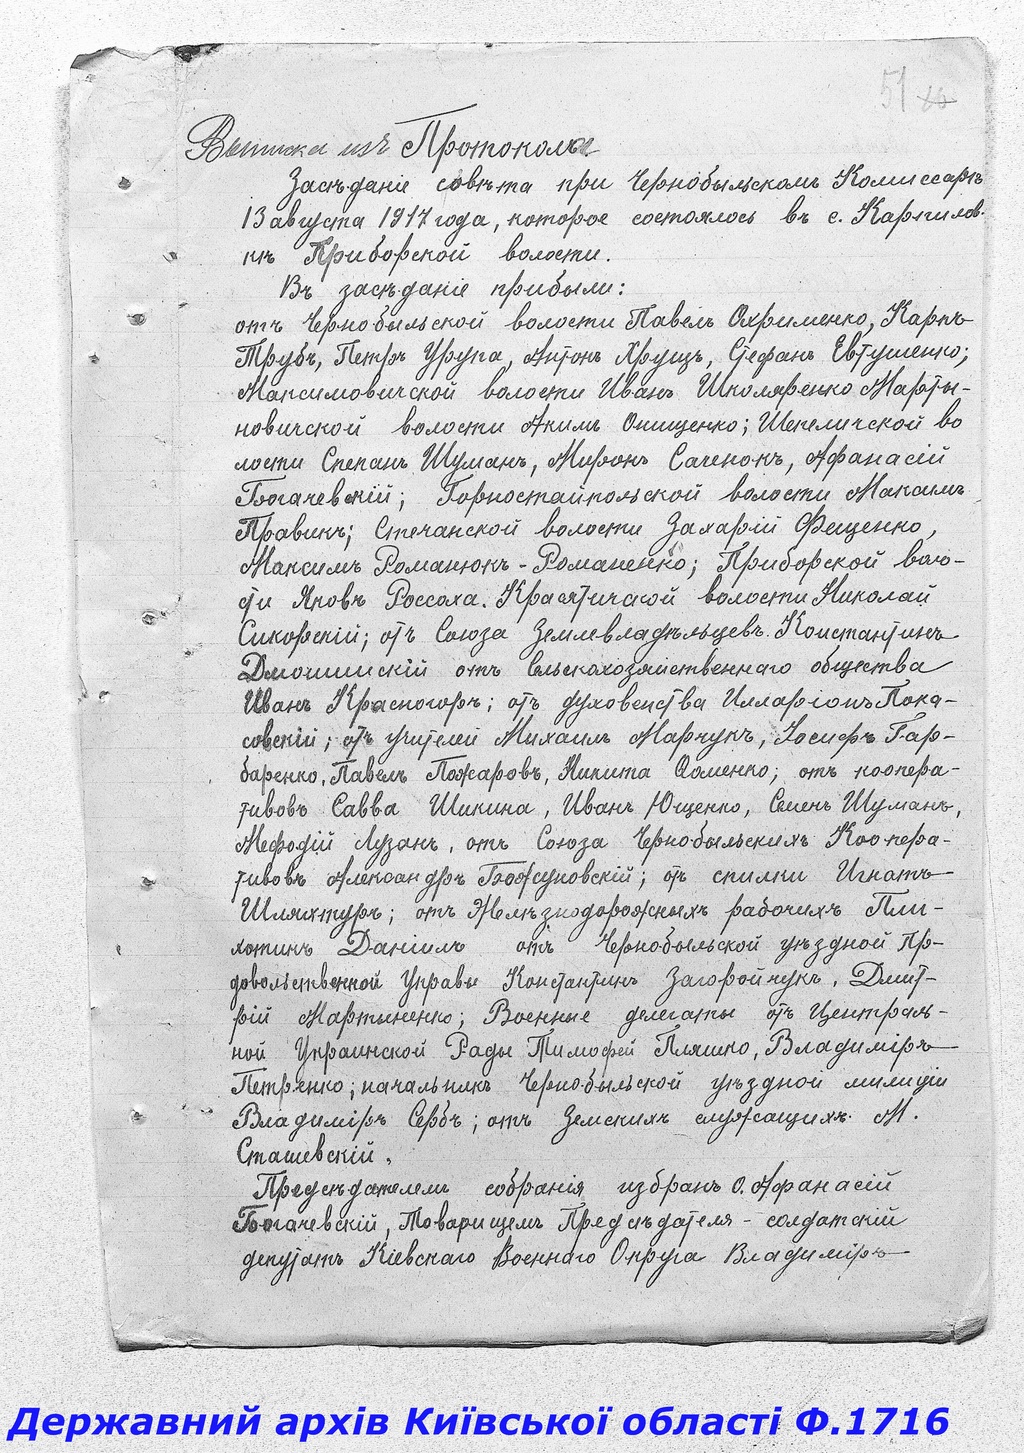 51
Выписка изъ Протокола
Засѣданіе совѣта при Чернобыльскомъ Комиссарѣ
13 августа 1917 года, которое состоялось въ с. Карпилов-
кѣ Приборской волости.
Въ засѣданіе прибыли:
отъ Чернобыльской волости Павелъ Охрименко, Карпъ
Трубъ, Петръ Урупа, Антонъ Хрущъ, Стефанъ Евтушенко;
Максимовичской волости Иванъ Школяренко Марты-
новичской волости Акимъ Онищенко; Шепеличской во
лости Степанъ Шуманъ, Миронъ Саченокъ, Афанасій
Богачевскій; Горностайпольской волости Максимъ
Правикъ; Стечанской волости Захарій Фещенко,
Максимъ Романюкъ-Романенко; Приборской воло-
сти Яковъ Россоха. Красятичской волости Николай
Сикорскій; отъ Союза Землевладѣльцевъ Константинъ
отъ Сельскохозяйственнаго общества
Иванъ Красногоръ; отъ духовенства Илларіонъ Пока-
совскій; отъ учителей Михаилъ Марчукъ, Іосифъ Гар-
баренко, Павелъ Пожаровъ, Никита Фоменко; отъ коопера-
тивовъ Савва Шикина, Иванъ Ющенко, Семенъ Шуманъ,
Мефодій Лузанъ, отъ Союза Чернобыльскихъ Коопера-
тивовъ Александръ Божуковскій; отъ спилки Игнатъ
Шляхтуръ; отъ Желѣзнодорожныхъ рабочихъ Пли-
хотинъ Даніилъ отъ Чернобыльской уѣздной Пр-
довольственной Управы Константинъ Загоройчукъ, Дмит-
рій Мартыненко; Военные делегаты отъ Централь-
ной Украинской Рады Тимофей Пляшко, Владиміръ
Петренко; начальникъ Чернобыльской уѣздной милиціи
Владиміръ Сербъ; отъ Земскихъ служащихъ М.
Сташевскій.
Предсѣдателемъ собранія избранъ О. Афанасій
Богачевскій, Товарищемъ Предсѣдателя - солдатскій
депутатъ Кіевскаго Военнаго Округа Владиміръ
Державний архів Київської області Ф.1716